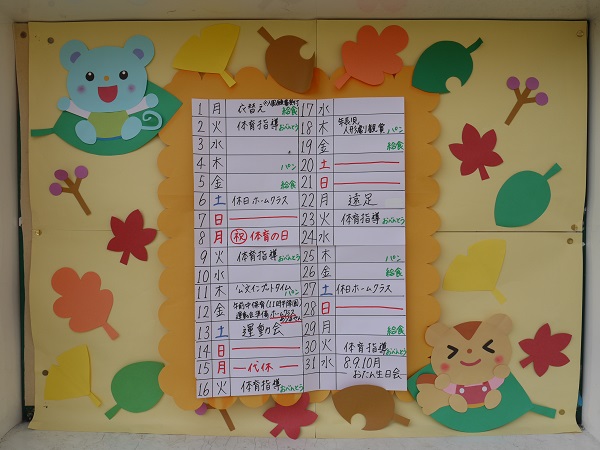 1 月 代替え 給食
2 火 体育指導 おべんとう
3 水
4 木 パン
5 金 給食
6 土 休日ホームクラス
7 日
8 月 祝 体育の日
9 火 体育指導 おべんとう
10 水
11 木 公文インプットタイム パン
12 金 午前中保育(11時半降園)
運動会準備 ホームクラス
ありません
13 土 運動会
14 日
15 月 代休
16 火 体育指導 おべんとう
17 水
18 木 年長児 人形劇観賞 パン
19 金 給食
20 土
21 日
22 月 遠足
23 火 体育指導 おべんとう
24 水
25 木 パン
26 金 給食
27 土 休日ホームクラス
28 日
29 月 給食
30 火 体育指導 おべんとう
31 水 8.9.10月
おたん生日会